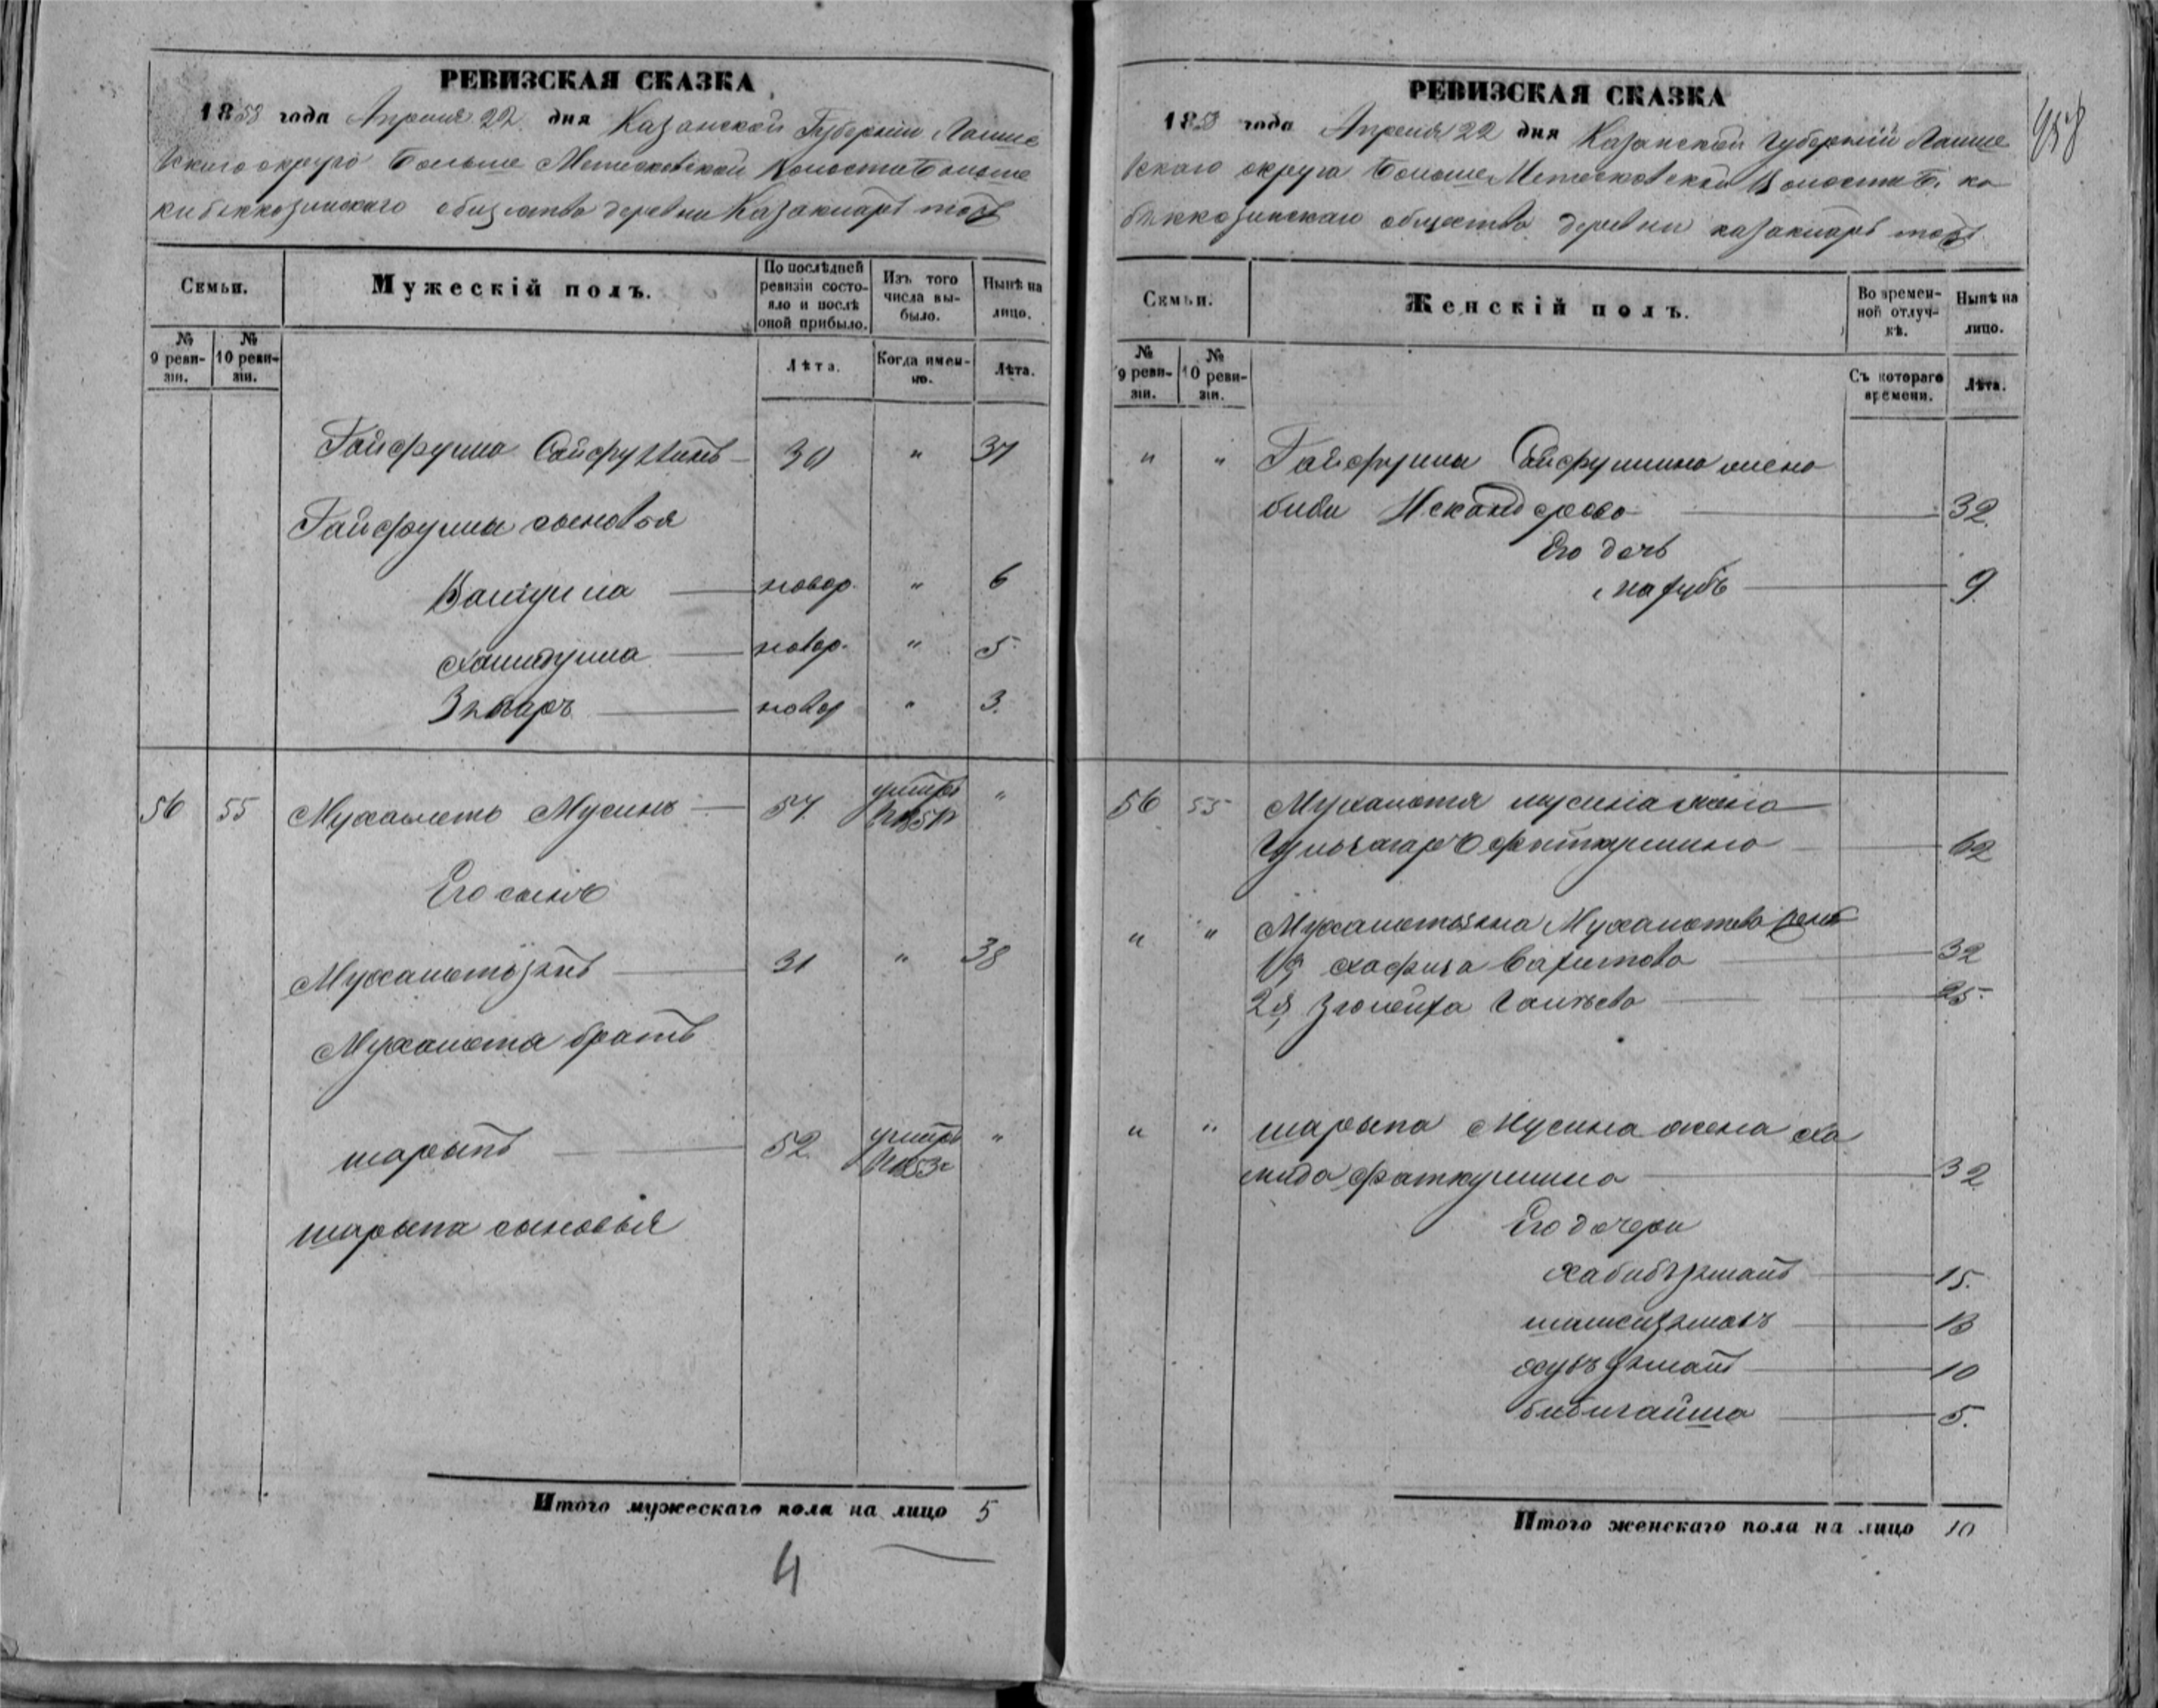 РЕВИЗСКАЯ СКАЗКА
1858 года Апреля 22 дня Казанской Губернiи Лаише
вскаго округа Больше Метесковской Волости Больше
кибяккозинскаго общества деревни Казакларъ тожъ
Семьи.
Мужескій полъ.
По послѣдней ревизіи состояло и послѣ оной прибыло.
Изъ того числа выбыло.
Нынѣ на лицо.
№ 9 ревизіи.
№ 10 ревизіи.
Лѣта.
Когда именно.
Лѣта.
Гайфулла Сайфуллинъ 30 " 37
Гайфуллы сыновья
новор. " 6
новор. " 5
новор " 3.
56 55 Мухаметъ Мусинъ 57 "
Его сынъ
Мухаметзянъ 31 " 38
Мухаметя братъ
шарыпъ 52 "
шарыпа сыновья
Итого мужескаго пола на лицо 5
4
РЕВИЗСКАЯ СКАЗКА
1858 года Апреля 22 дня Казанской Губернiи Лаише
вскаго округа Больше Метесковской Волости Б. ки
бяккозинскаго общества деревни казакларъ тожъ
958
Семьи.
Женскій полъ.
Во временной отлучкѣ.
Нынѣ на лицо.
№ 9 ревизіи.
№ 10 ревизіи.
Съ котораго времени.
Лѣта.
" " Гайфуллы Сайфуллина жена
биби Искандерова 32.
Его дочь
9.
56 55 Мухаметя мусина жена
фаткуллина 62
" " Мухаметзяна Мухаметева жены
1я хафиза 32
2я 25.
" " шарыпа Мусина жена ха
мида фаткуллина 32
Его дочери
хабибзямалъ 15.
шамсизямалъ 13
10
бибигайша 5.
Итого женскаго пола на лицо 10